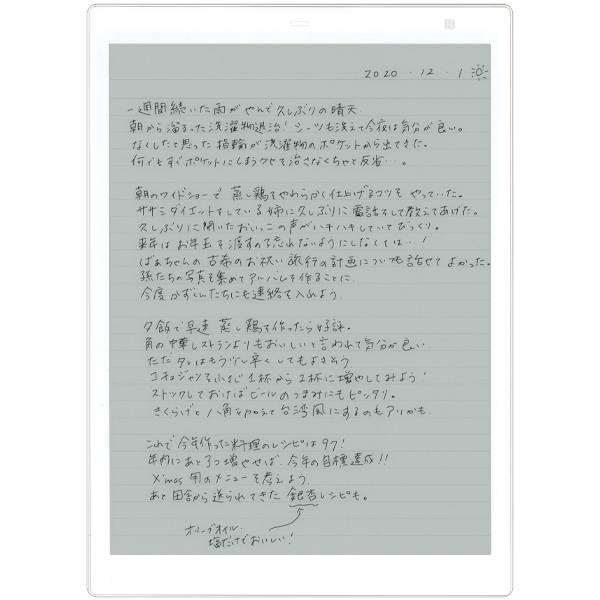 2020・12・1
一週間続いた雨がやんで久しぶりの晴天。
朝から溜まった洗濯物退治！シーツも洗えて今夜は気分が良い。
なくしたと思った指輪が洗濯物のポケットから出てきた。
何でもすぐポケットにしまうクセを治さなくちゃと反省…。
朝のワイドショーで蒸し鶏をやわらかく仕上げるコツをやっていた。
ササミダイエットをしている姉に久しぶりに電話をして教えてあげた。
久しぶりに聞いたおいっこの声がハキハキしていてびっくり。
来年はお年玉を渡すの忘れないようにしなくては…！
ばぁちゃんの古寿のお祝い旅行の計画についても話せてよかった。
孫たちの写真を集めてアルバムを作ることに。
今度かずくんたちにも連絡を入れよう。
夕飯で早速蒸し鶏を作ったら好評。
角の中華レストランよりもおいしいと言われて気分が良い
ただタレはもう少し辛くしてもよさそう
コチュジャンを小さじ1杯から2杯に増やしてみよう！
ストックしておけばビールのつまみにもピッタリ。
きくらげと八角を加えて台湾風にするのもアリかも。
これで今年作った料理のレシピは97！
年内にあと3つ増やせば、今年の目標達成！！
X'mas用のメニューを考えよう。
あと田舎から送られてきた銀杏レシピも。
オリーブオイル
塩だけでおいしい！